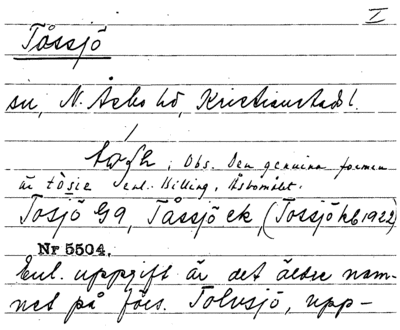 I
Tåssjö
sn, N. Åsbo hd, Kristianstads l.
Obs. Den genuina formen
är tòsie enl. Billing, Åsbomålet.
Tosjö G9, Tåssjö ek, (Tossjö hb 1922)
Nr 5504.
Enl. uppgift är det äldre nam-
net på förs. Tolvsjö, upp-